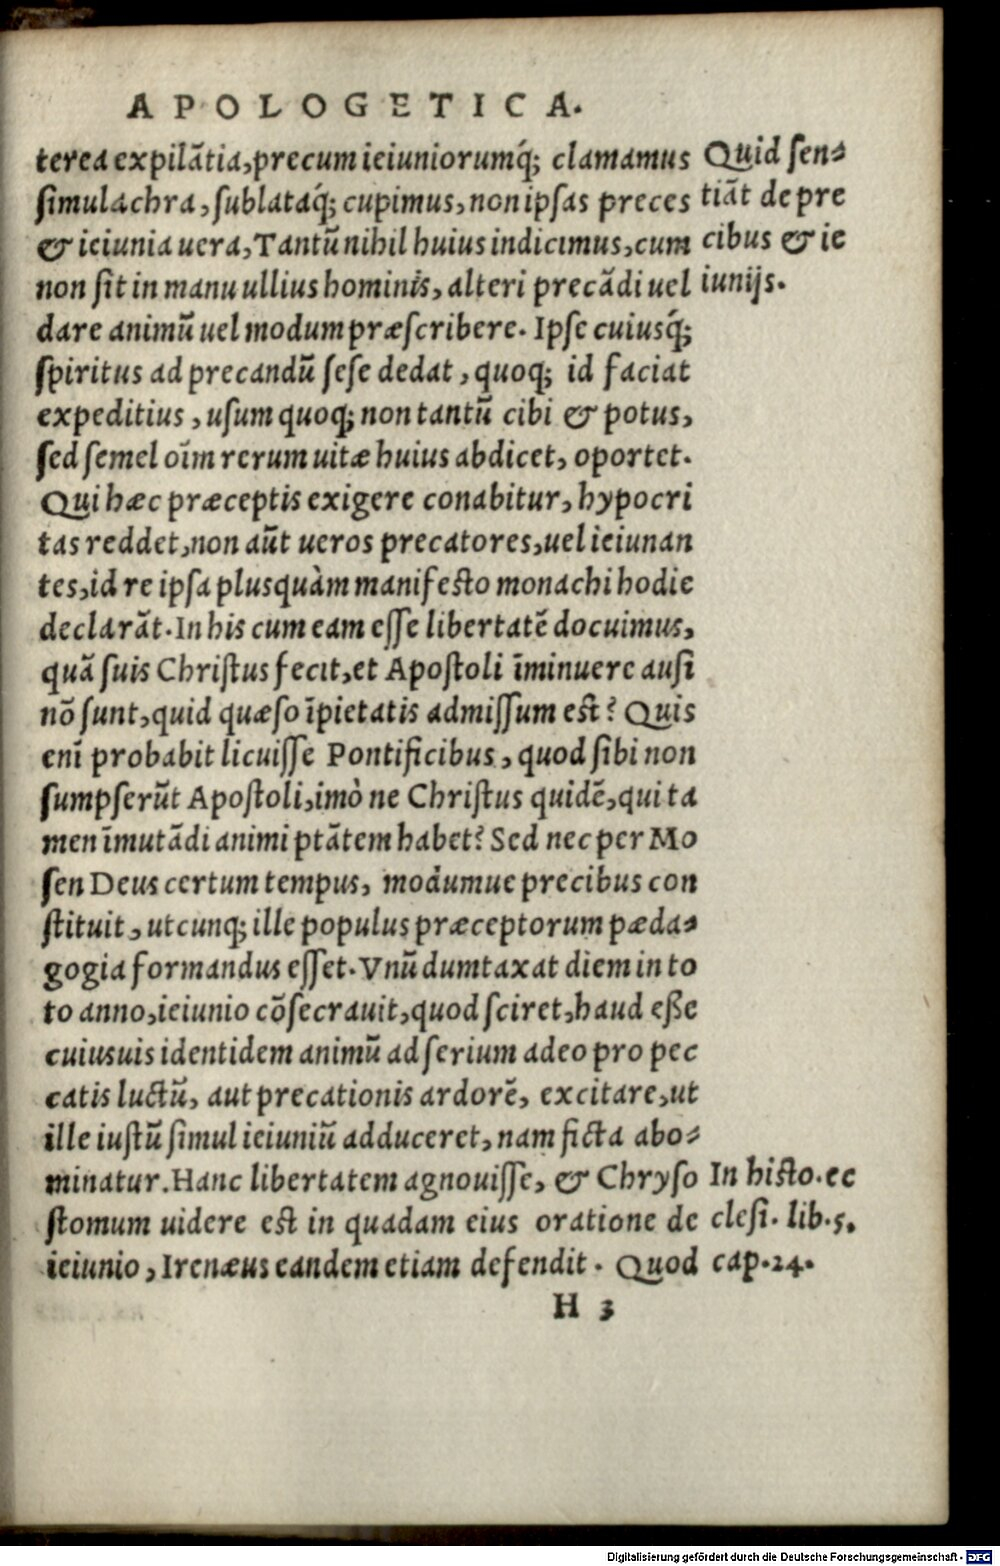 APOLOGETICA.
terea expilãtia, precum ieiuniorumq́; clamamus
simulachra, sublataq́; cupimus, non ipsas preces
& ieiunia uera, Tantũ nihil huius indicimus, cum
non sit in manu ullius hominis, alteri precãdi uel
dare animũ uel modum præscribere. Ipse cuiusq́;
spiritus ad precandũ sese dedat, quoq; id faciat
expeditius, usum quoq; non tantũ cibi & potus,
sed semel oı̃m rerum uitæ huius abdicet, oportet.
Qui hæc præceptis exigere conabitur, hypocri
tas reddet, non aũt ueros precatores, uel ieiunan
tes, id re ipsa plusquàm manifesto monachi hodie
declarãt. In his cum eam esse libertatẽ docuimus,
quã suis Christus fecit, et Apostoli ĩminuere ausi
nõ sunt, quid quæso ĩpietatis admissum est? Quis
enĩ probabit licuisse Pontificibus, quod sibi non
sumpserũt Apostoli, imò ne Christus quidẽ, qui ta
men ĩmutãdi animi ptãtem habet? Sed nec per Mo
sen Deus certum tempus, modumue precibus con
stituit, utcunq; ille populus præceptorum pæda-
gogia formandus esset. Vnũ dumtaxat diem in to
to anno, ieiunio cõsecrauit, quod sciret, haud eße
cuiusuis identidem animũ ad serium adeo pro pec
catis luctũ, aut precationis ardorẽ, excitare, ut
ille iustũ simul ieiuniũ adduceret, nam ficta abo-
minatur. Hanc libertatem agnouisse, & Chryso
stomum uidere est in quadam eius oratione de
ieiunio, Irenæus eandem etiam defendit. Quod
H 3
Quid sen-
tiãt de pre
cibus & ie
iunijs.
In histo. ec
clesi. lib. 5.
cap. 24.
Digitalisierung gefördert durch die Deutsche Forschungsgemeinschaft - DFG